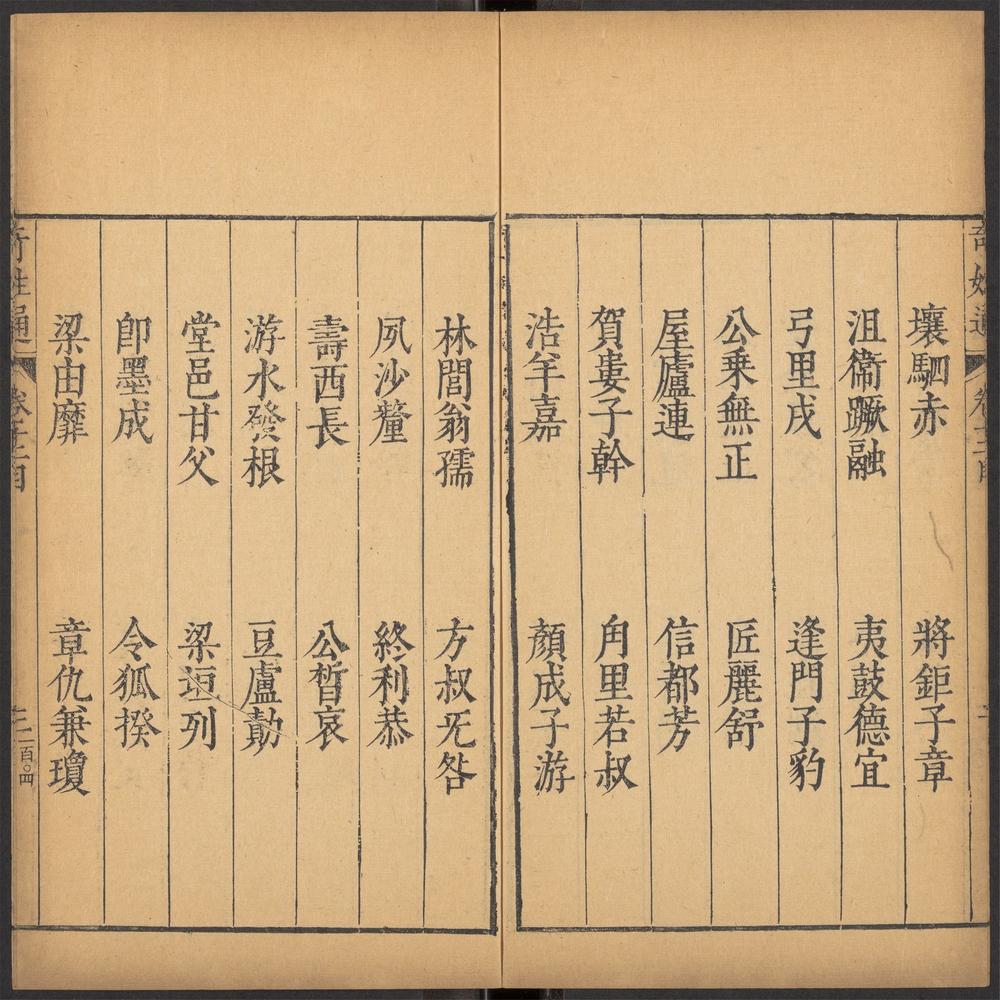 壤駟赤 將鉅子章
沮衞蹶融 夷鼓德宜
弓里戌 逢門子豹
公乗無正 匠麗舒
屋廬連 信都芳
賀婁子幹 角里若叔
浩羊嘉 顏成子游
林閭翁孺 方叔无咎
夙沙釐 終利恭
壽西長 公晳哀
游水發根 豆盧勣
堂邑甘父 梁垣列
卽墨成 令狐揆
梁由靡 章仇兼瓊
二百〇四